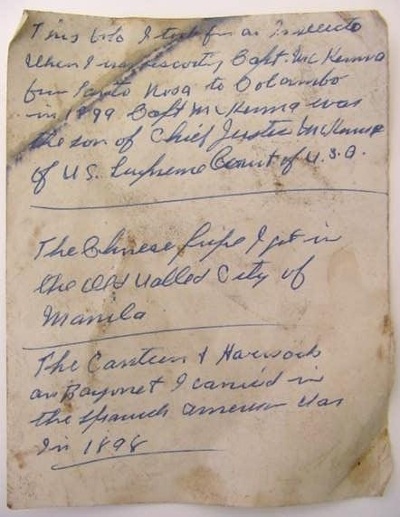 This bolo I took from an Insurecto
When I was escorting Capt. McKenna
from Santo Rosa to Colambo
in 1899 Capt McKenna was
the son of Chief Justice McKenna
of U.S. Supreme Court of U.S.A.
The Chinese pipe I got in
the Old Walled City of
Manila
The Canteen & Haversack
an Bayonet I carried in
the Spanish American War
In 1898